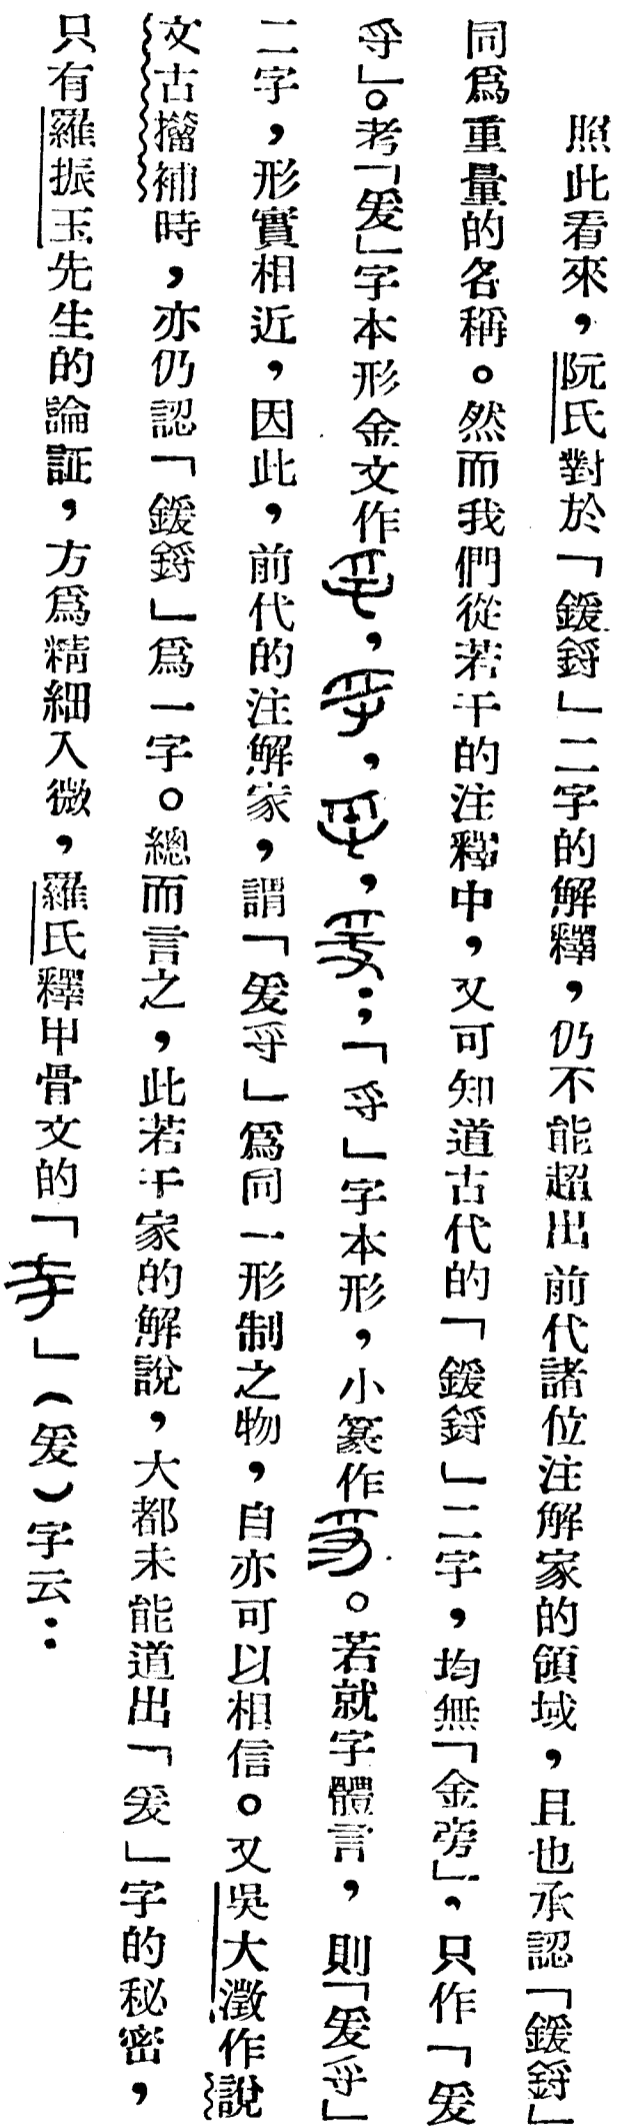 照此看來，阮氏對於「鍰鋝」二字的解釋，仍不能超出前代諸位注解家的領域，且也承認「鍰鋝」
同爲重量的名稱。然而我們從若干的注釋中，又可知道古代的「鍰鋝」二字，均無「金旁」，只作「爰
寽」。考「爰」字本形金文作，，，；「寽」字本形，小篆作。若就字體言，則「爰寽」
二字，形實相近，因此，前代的注解家，謂「爰寽」爲同一形制之物，自亦可以相信。又吳大澂作說
文古籀補時，亦仍認「鍰鋝」爲一字。總而言之，此若干家的解說，大都未能道出「爰」字的秘密，
只有羅振玉先生的論証，方爲精細入微，羅氏釋甲骨文的「」（爰）字云：